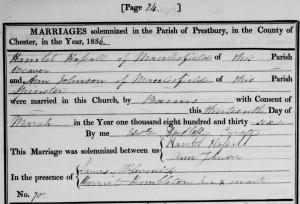 [Page 24.]
MARRIAGES solemnized in the Parish of Prestbury, in the County of
Chester, in the Year, 1836.
Hamlet Hassall of Macclesfield of this Parish
Weaver
and Ann Johnson of Macclesfield of this Parish
Spinster
were married in this Church, by Banns with Consent of
this thirteenth Day of
March in the Year one thousand eight hundred and thirty six
By me
This Marriage was solemnized between us Hamlet Hassall
Ann Johnson
In the presence of James
Harriet her x mark
No. 70.